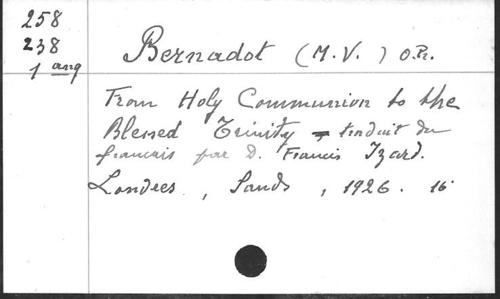 258
238
1 ang
Bernadot (M.V.) O.P.
From Holy Communion to the
Blessed Trinity - traduit du
francais par D. Francis Izard.
Londres, Sands, 1926. 16